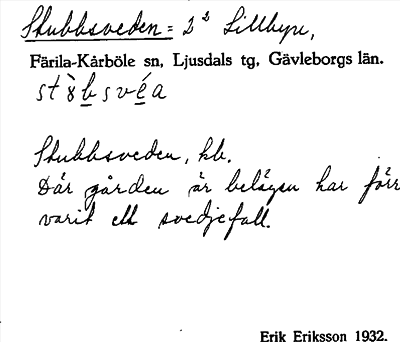 Stubbsveden = 2² Lillbyn,
Färila-Kårböle sn, Ljusdals tg, Gävleborgs län.
Stubbsveden, hb.
Där gården är belägen har förr
varit ett svedjefall.
Erik Eriksson 1932.